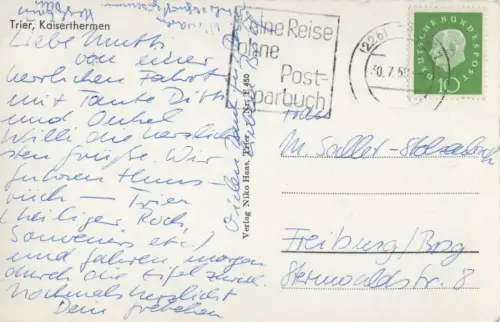 Trier, Kaiserthermen
Liebe Mutti
von einer
herrlichen Fahrt
mit Tante Ditti
und Onkel
Willi die herzlich-
sten Grüße. Wir
fuhren Huns-
rück – Trier
(heiliger Rock,
Souvenirs etc.)
und fahren morgen
durch die Eifel zurück.
Nochmals herzlichst
Dein
Vielen Dank für
Verlag Niko Haas, Trier Nr. E 450
eine Reise
ohne
Post-
sparbuch
(22b)
30.7.59
DEUTSCHE BUNDESPOST
10
Frau
M.
Freiburg/Brsg
Sternwaldstr. 8